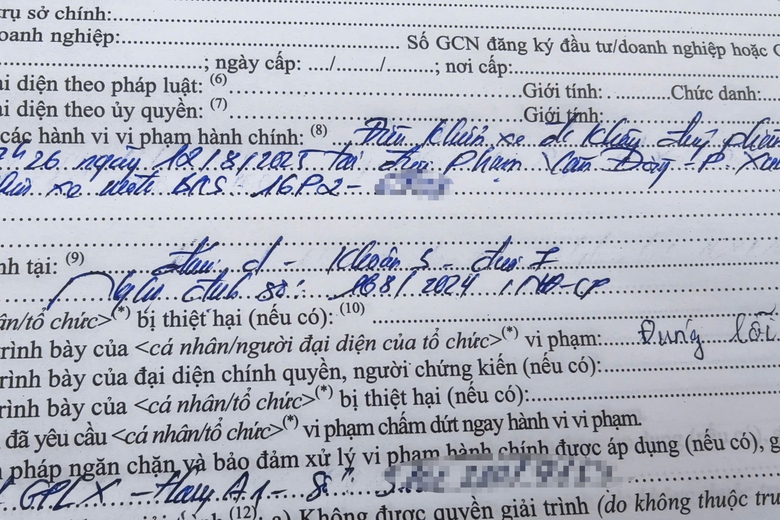 trụ sở chính:
doanh nghiệp: Số GCN đăng ký đầu tư/doanh nghiệp hoặc G
; ngày cấp: ..../....../........; nơi cấp:
ại diện theo pháp luật: (6) Giới tính: Chức danh:
ại diện theo ủy quyền: (7) Giới tính:
các hành vi vi phạm hành chính: (8) Điều khiển xe đi không đúng phần
h26 ngày 12/8/2025 tại đường Phạm Văn Đồng - P. Xuâ
xe môtô BKS: 16P2 -
nh tại: (9) điểm d - Khoản 5 - điều 7
Nghị định số: 168/2024/NĐ-CP
hân/tổ chức>(*) bị thiệt hại (nếu có): (10)
rình bày của <cá nhân/người đại diện của tổ chức>(*) vi phạm: Đúng lỗi
rình bày của đại diện chính quyền, người chứng kiến (nếu có):
rình bày của <cá nhân/tổ chức>(*) bị thiệt hại (nếu có):
đã yêu cầu <cá nhân/tổ chức>(*) vi phạm chấm dứt ngay hành vi vi phạm.
n pháp ngăn chặn và bảo đảm xử lý vi phạm hành chính được áp dụng (nếu có), g
GPLX - Hạng A1 - Số
(12): a) Không được quyền giải trình (do không thuộc trư